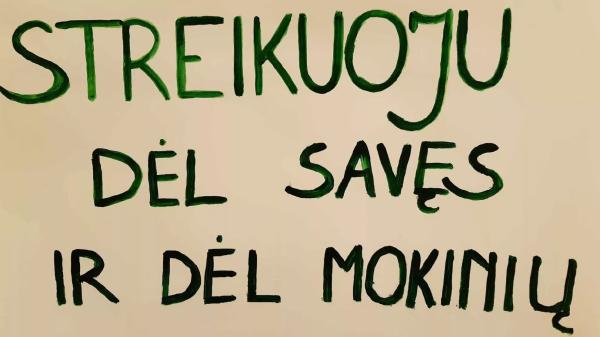 STREIKUOJU
DĖL SAVĘS
IR DĖL MOKINIŲ